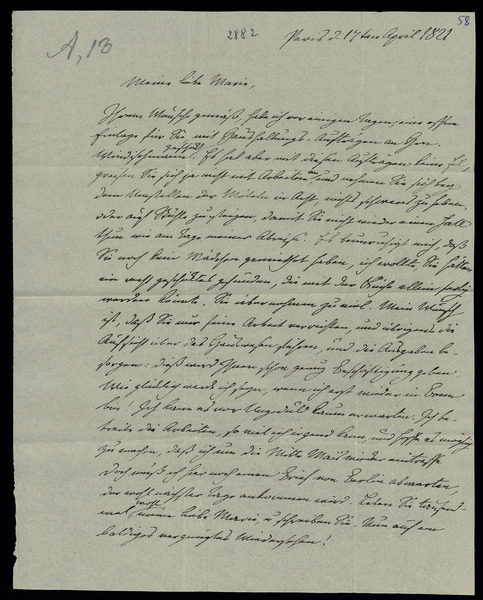 58
2882
A, 13
Paris d. 17ten April 1821
Meine liebe Marie,
Ihrem Wunsche gemäß, habe ich vor einigen Tagen, eine offene
Einlage für Sie mit Haushaltungs-Aufträgen an Hrn.
Windischmann geschickt. Es hat aber mit diesen Aufträgen keine Eil,
greifen Sie sich ja nicht mit Arbeiten an, und nehmen Sie sich bey
dem Umstellen der Möbeln in Acht, nicht schwer zu heben,
oder auf Stühle zu steigen, damit Sie nicht wieder einen Fall
thun wie am Tage meiner Abreise. Es beunruhigt mich, daß
Sie noch kein Mädchen gemiethet haben, ich wollte, Sie hätten
ein recht geschicktes gefunden, die mit der Küche allein fertig
werden könnte. Sie übernehmen zu viel. Mein Wunsch
ist, daß Sie nur feine Arbeit verrichten, und übrigens die
Aufsicht über das Hauswesen führen, und die Ausgaben be-
sorgen: dieß wird Ihnen schon genug Beschäftigung geben.
Wie glücklich werde ich seyn, wenn ich erst wieder in Bonn
bin! Ich kann es vor Ungeduld kaum erwarten. Ich be-
treibe die Arbeiten, so viel ich irgend kann, und hoffe es möglich
zu machen, daß ich um die Mitte Mai's wieder eintreffe
Doch muß ich hier noch einen Brief von Berlin abwarten,
der wohl nächster Tage ankommen wird. Leben Sie tausend-
mal wohl meine liebe Marie u schreiben Sie. Nun auf ein
baldiges vergnügtes Wiedersehen!